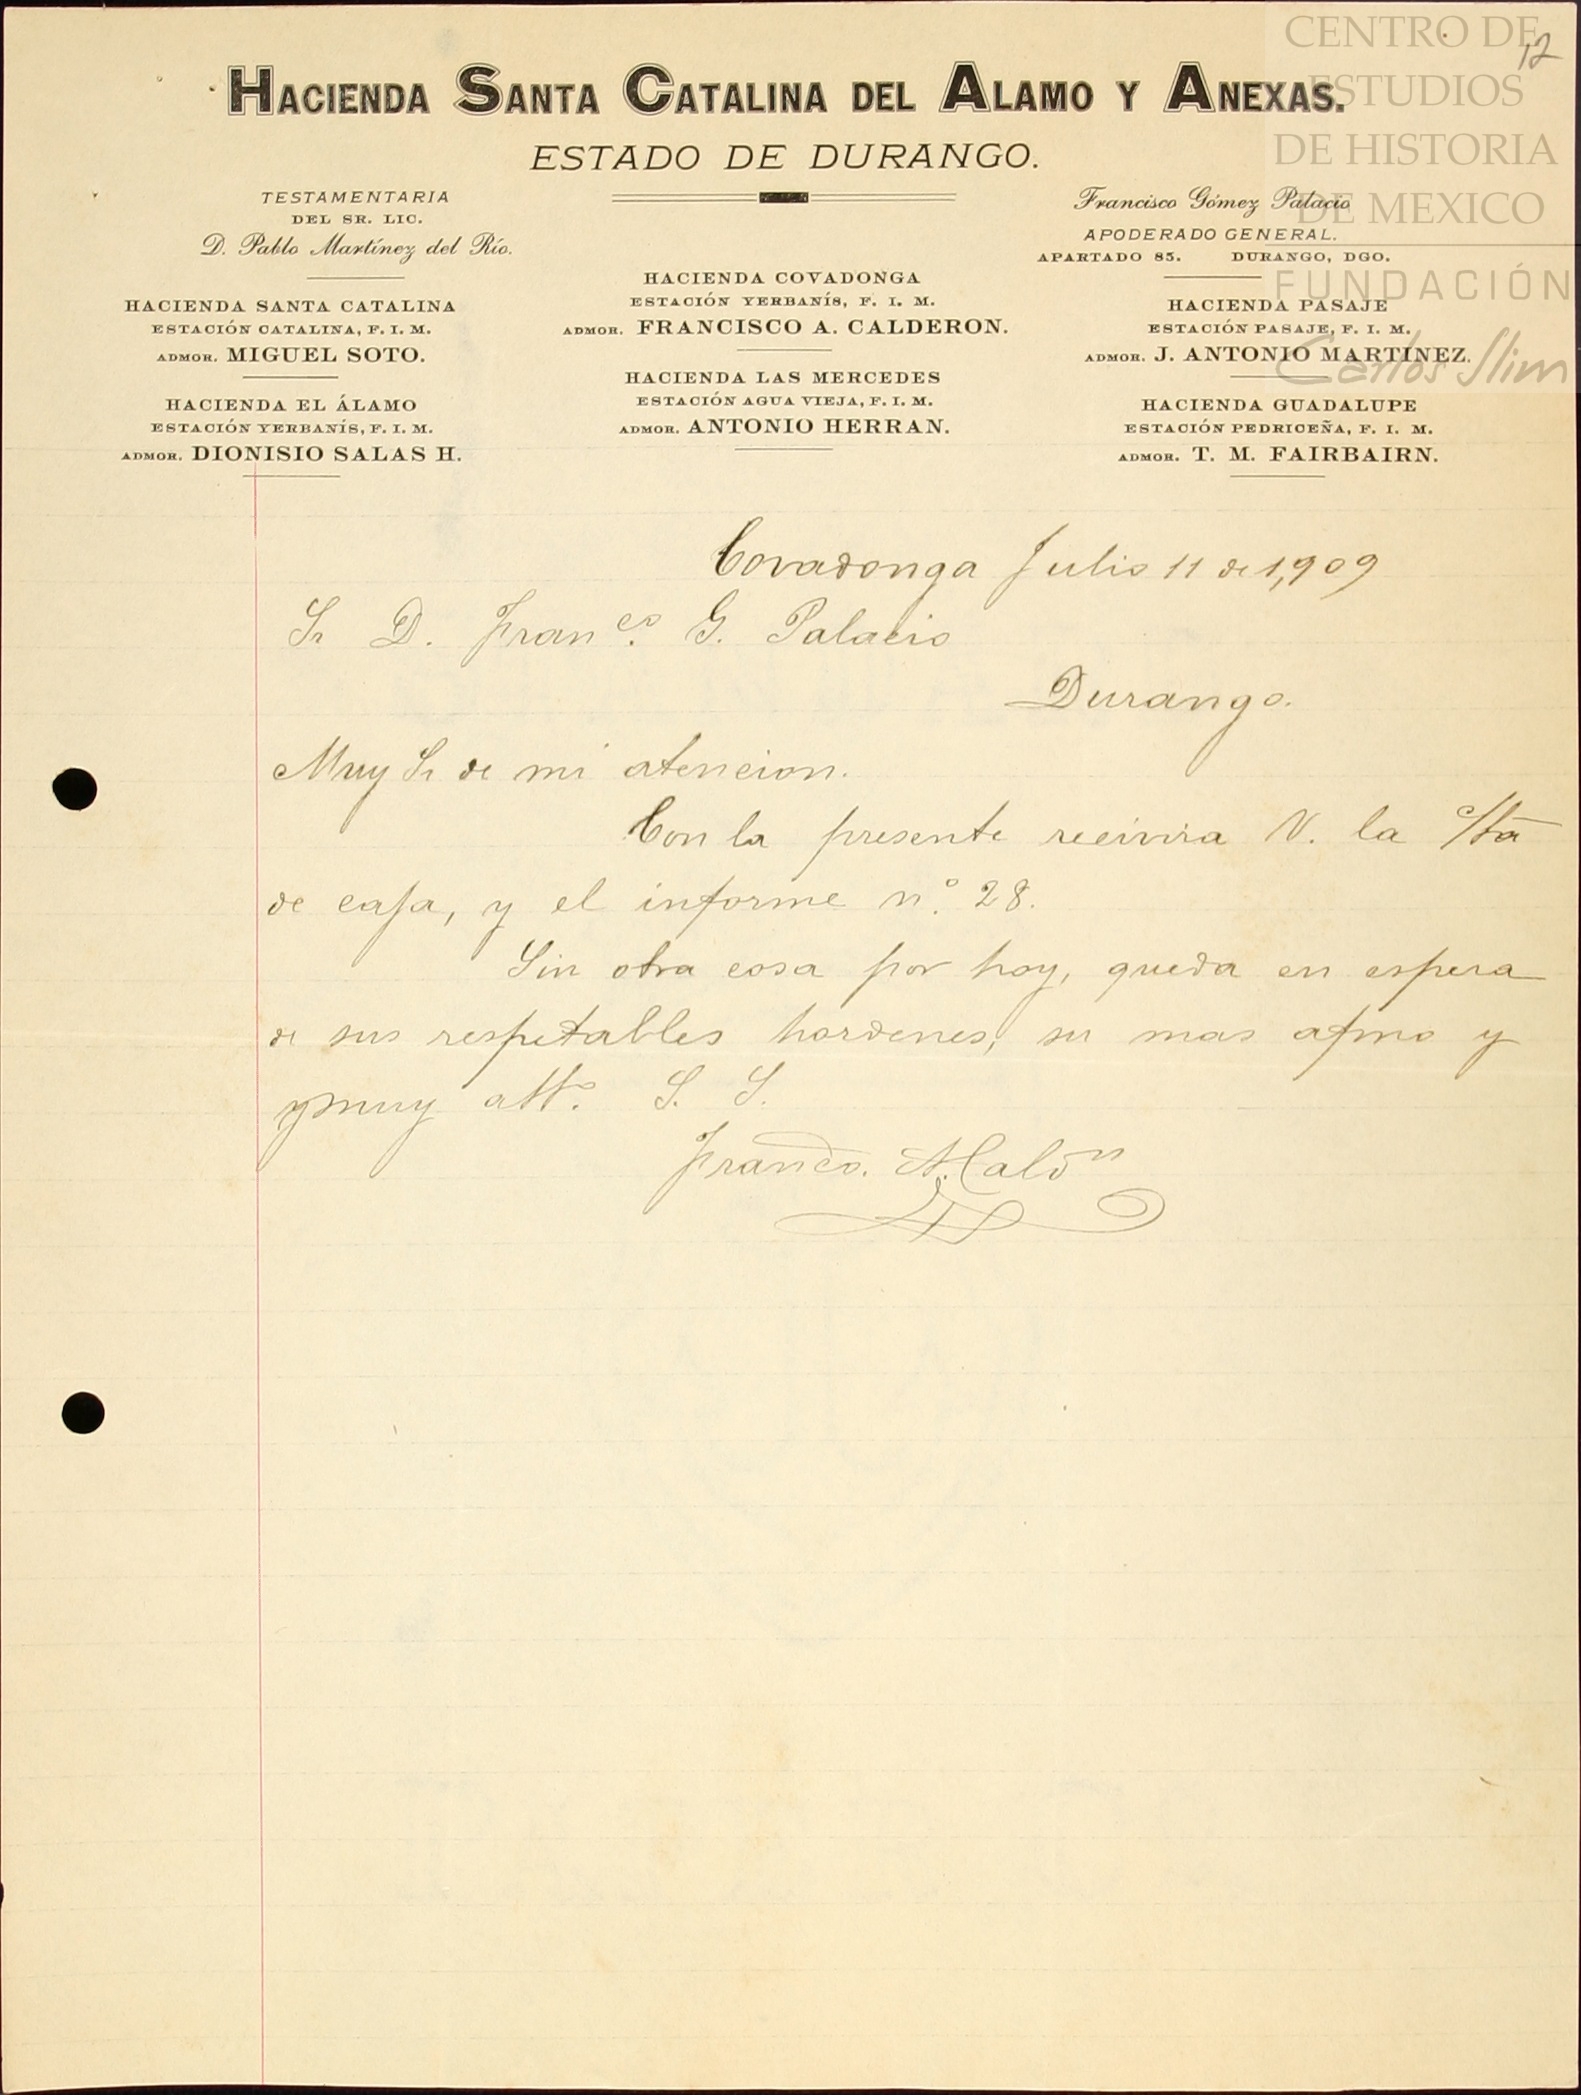 12
HACIENDA SANTA CATALINA DEL ALAMO Y ANEXAS.
ESTADO DE DURANGO.
TESTAMENTARIA
DEL SR. LIC.
D. Pablo Martínez del Río.
HACIENDA SANTA CATALINA
ESTACIÓN CATALINA, F. I. M.
ADMOR. MIGUEL SOTO.
HACIENDA EL ÁLAMO
ESTACIÓN YERBANÍS, F. I. M.
ADMOR. DIONISIO SALAS H.
HACIENDA COVADONGA
ESTACIÓN YERBANÍS, F. I. M.
ADMOR. FRANCISCO A. CALDERON.
HACIENDA LAS MERCEDES
ESTACIÓN AGUA VIEJA, F. I. M.
ADMOR. ANTONIO HERRAN.
Francisco Gómez Palacio
APODERADO GENERAL.
APARTADO 85. DURANGO, DGO.
HACIENDA PASAJE
ESTACIÓN PASAJE, F. I. M.
ADMOR. J. ANTONIO MARTINEZ.
HACIENDA GUADALUPE
ESTACIÓN PEDRICEÑA, F. I. M.
ADMOR. T. M. FAIRBAIRN.
CENTRO DE
ESTUDIOS
DE HISTORIA
DE MEXICO
FUNDACIÓN
Carlos Slim
Covadonga Julio 11 de 1,909
Sr D. Franco. G. Palacio
Durango.
Muy Sr de mi atencion.
Con la presente recivira V. la
de caja, y el informe n.º 28.
Sin otra cosa por hoy, queda en espera
de sus respetables hordenes, su mas afmo y
y muy atto. S. S.
Franco. A. Calon